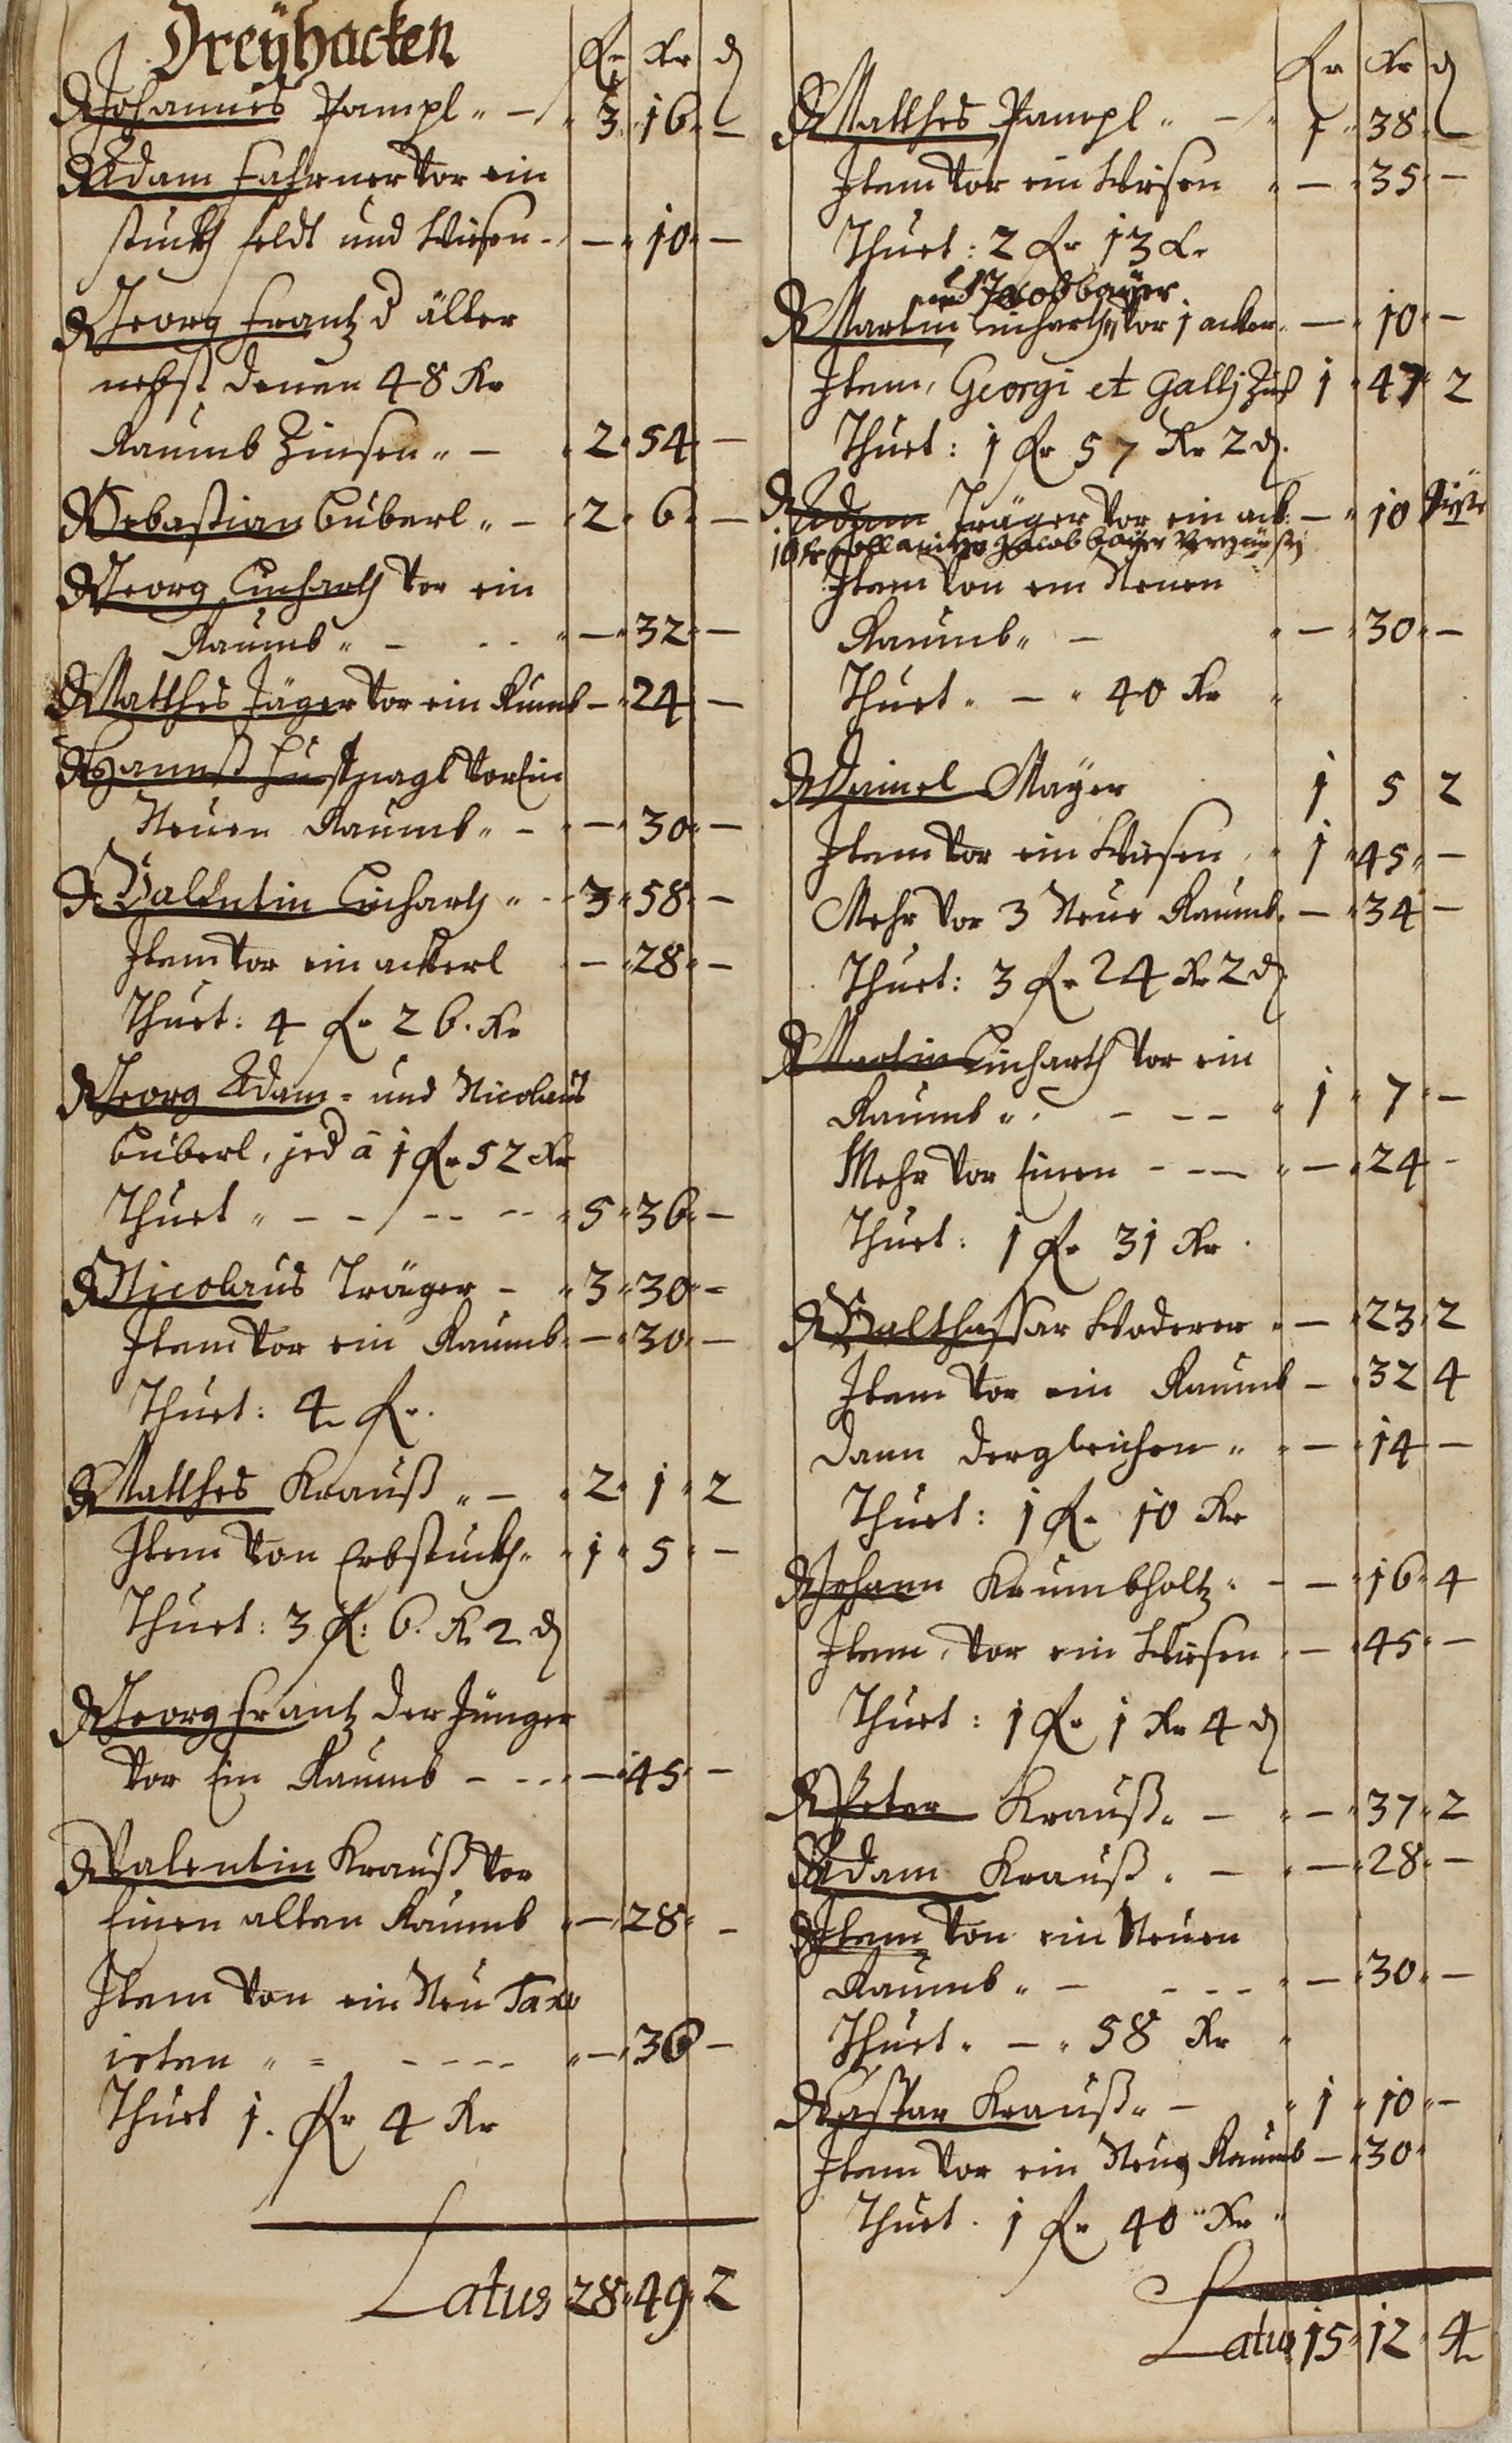 Dreÿhacken
fl. Kr d
Johannes Pampl 3 16 —
Adam Fahrner Vor ein
stuckh feldt und Wiesen — 10 —
Georg Frantz d älter
nebst denen 48 Kr
Raumb Zinsen 2 54 —
Sebastian Cüberl 2 6 —
Georg Linharth Vor ein
Raumb — 32 —
Matthes Jäger Vor ein Rumb — 24 —
Hannß Vor Ein
Neuen Raumb — 30 —
Vallentin Linharth 3 58 —
Item Vor ein ackerl — 28 —
Thuet: 4 fl. 26. Kr
Georg Adam = und Nicolaus
Cüberl, jed à 1 fl. 52 Kr
Thuet 5 36 —
Nicolaus Träger 3 30 —
Item Vor ein Raumb — 30 —
Thuet: 4 fl.
Matthes Krauß 2 1 2
Item Von Erbstuckh 1 5 —
Thuet: 3 fl: 6. Kr 2 d
Georg Frantz der Jünger
Vor Ein Raumb — 45 —
Valentin Krauß Vor
Einen alten Raumb — 28 —
Item Von ein Neu Taxi
irten — 36 —
Thuet 1. fl. 4 Kr
Latus 28 49 2
fl. Kr d
Matthes Pampl 1 38 —
Item Vor ein Wiesen — 35 —
Thuet: 2 fl. 13 Kr
und Jacob baÿer
Martin Linharth Vor 1 acker — 10 —
Item, Georgi et Gallj Zinß 1 47 2
Thuet: 1 fl. 57 Kr 2 d.
Adam Träger Vor ein ack: — 10
10 Kr soll anitzo Jacob baÿer
Item Von ein Neuen
Raumb — 30 —
Thuet — 40 Kr
Daniel Maÿer 1 5 2
Item Vor ein Wiesen 1 45 —
Mehr Vor 3 Neue Raumb — 34 —
Thuet: 3 fl. 24 Kr 2 d
Martin Linharth Vor ein
Raumb 1 7 —
Mehr Vor Einen — 24 —
Thuet: 1 fl. 31 Kr
Balthassar Woderer — 23 2
Item Vor ein Raumb — 32 4
Dann dergleichen — 14 —
Thuet: 1 fl. 10 Kr
Johann Krumbholtz — 16 4
Item, Vor ein Wiesen — 45 —
Thuet: 1 fl. 1 Kr 4 d
Peter Krauß — 37 2
Adam Krauß — 28 —
Item Von ein Neuen
Raumb — 30 —
Thuet — 58 Kr
Caspar Krauß 1 10 —
Item Vor ein Neuen Raumb — 30
Thuet. 1 fl. 40 Kr
Latus 15 12 4